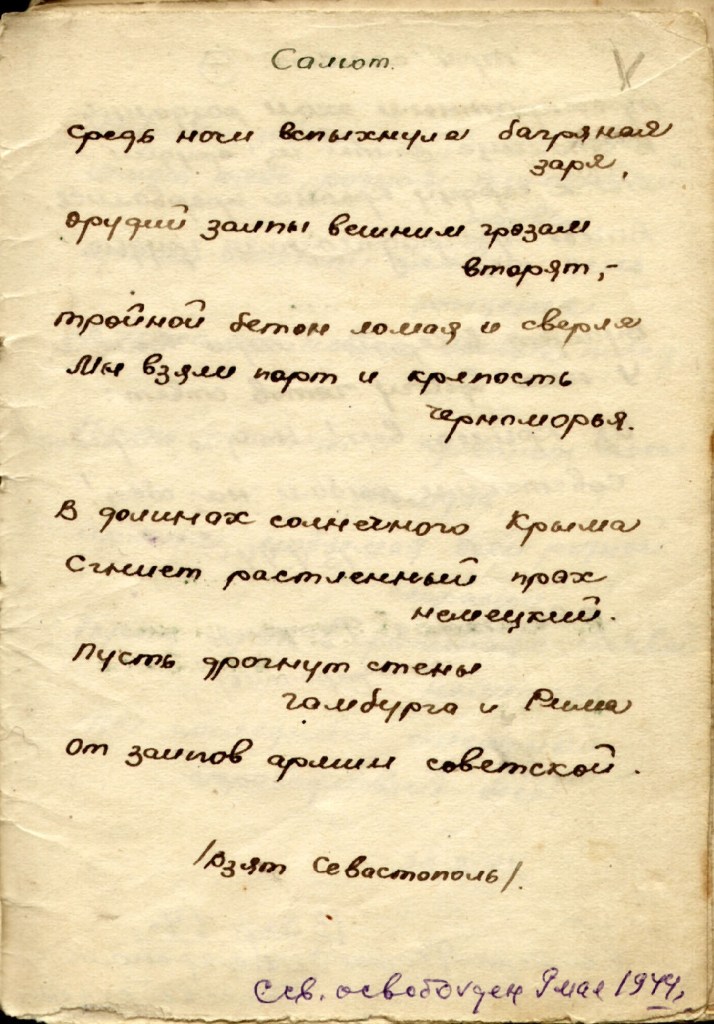 Салют.
Средь ночи вспыхнула багряная
заря,
орудий залпы вешним грозам
вторят,-
тройной бетон ломая и сверля
Мы взяли порт и крепость
Черноморья.
В долинах солнечного Крыма
Сгниет растленный прах
немецкий.
Пусть дрогнут стены
Гамбурга и Рима
От залпов армии советской.
/Взят Севастополь/.
Сев. освобожден 9 мая 1944,